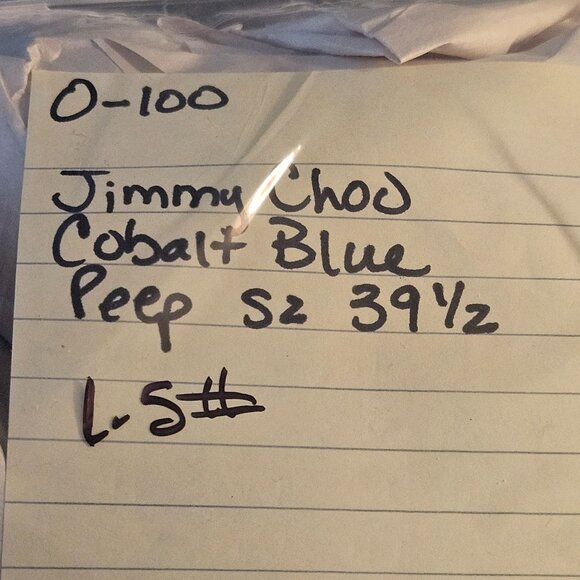 O-100
Jimmy Choo
Cobalt Blue
Peep Sz 39 1/2
1.5#